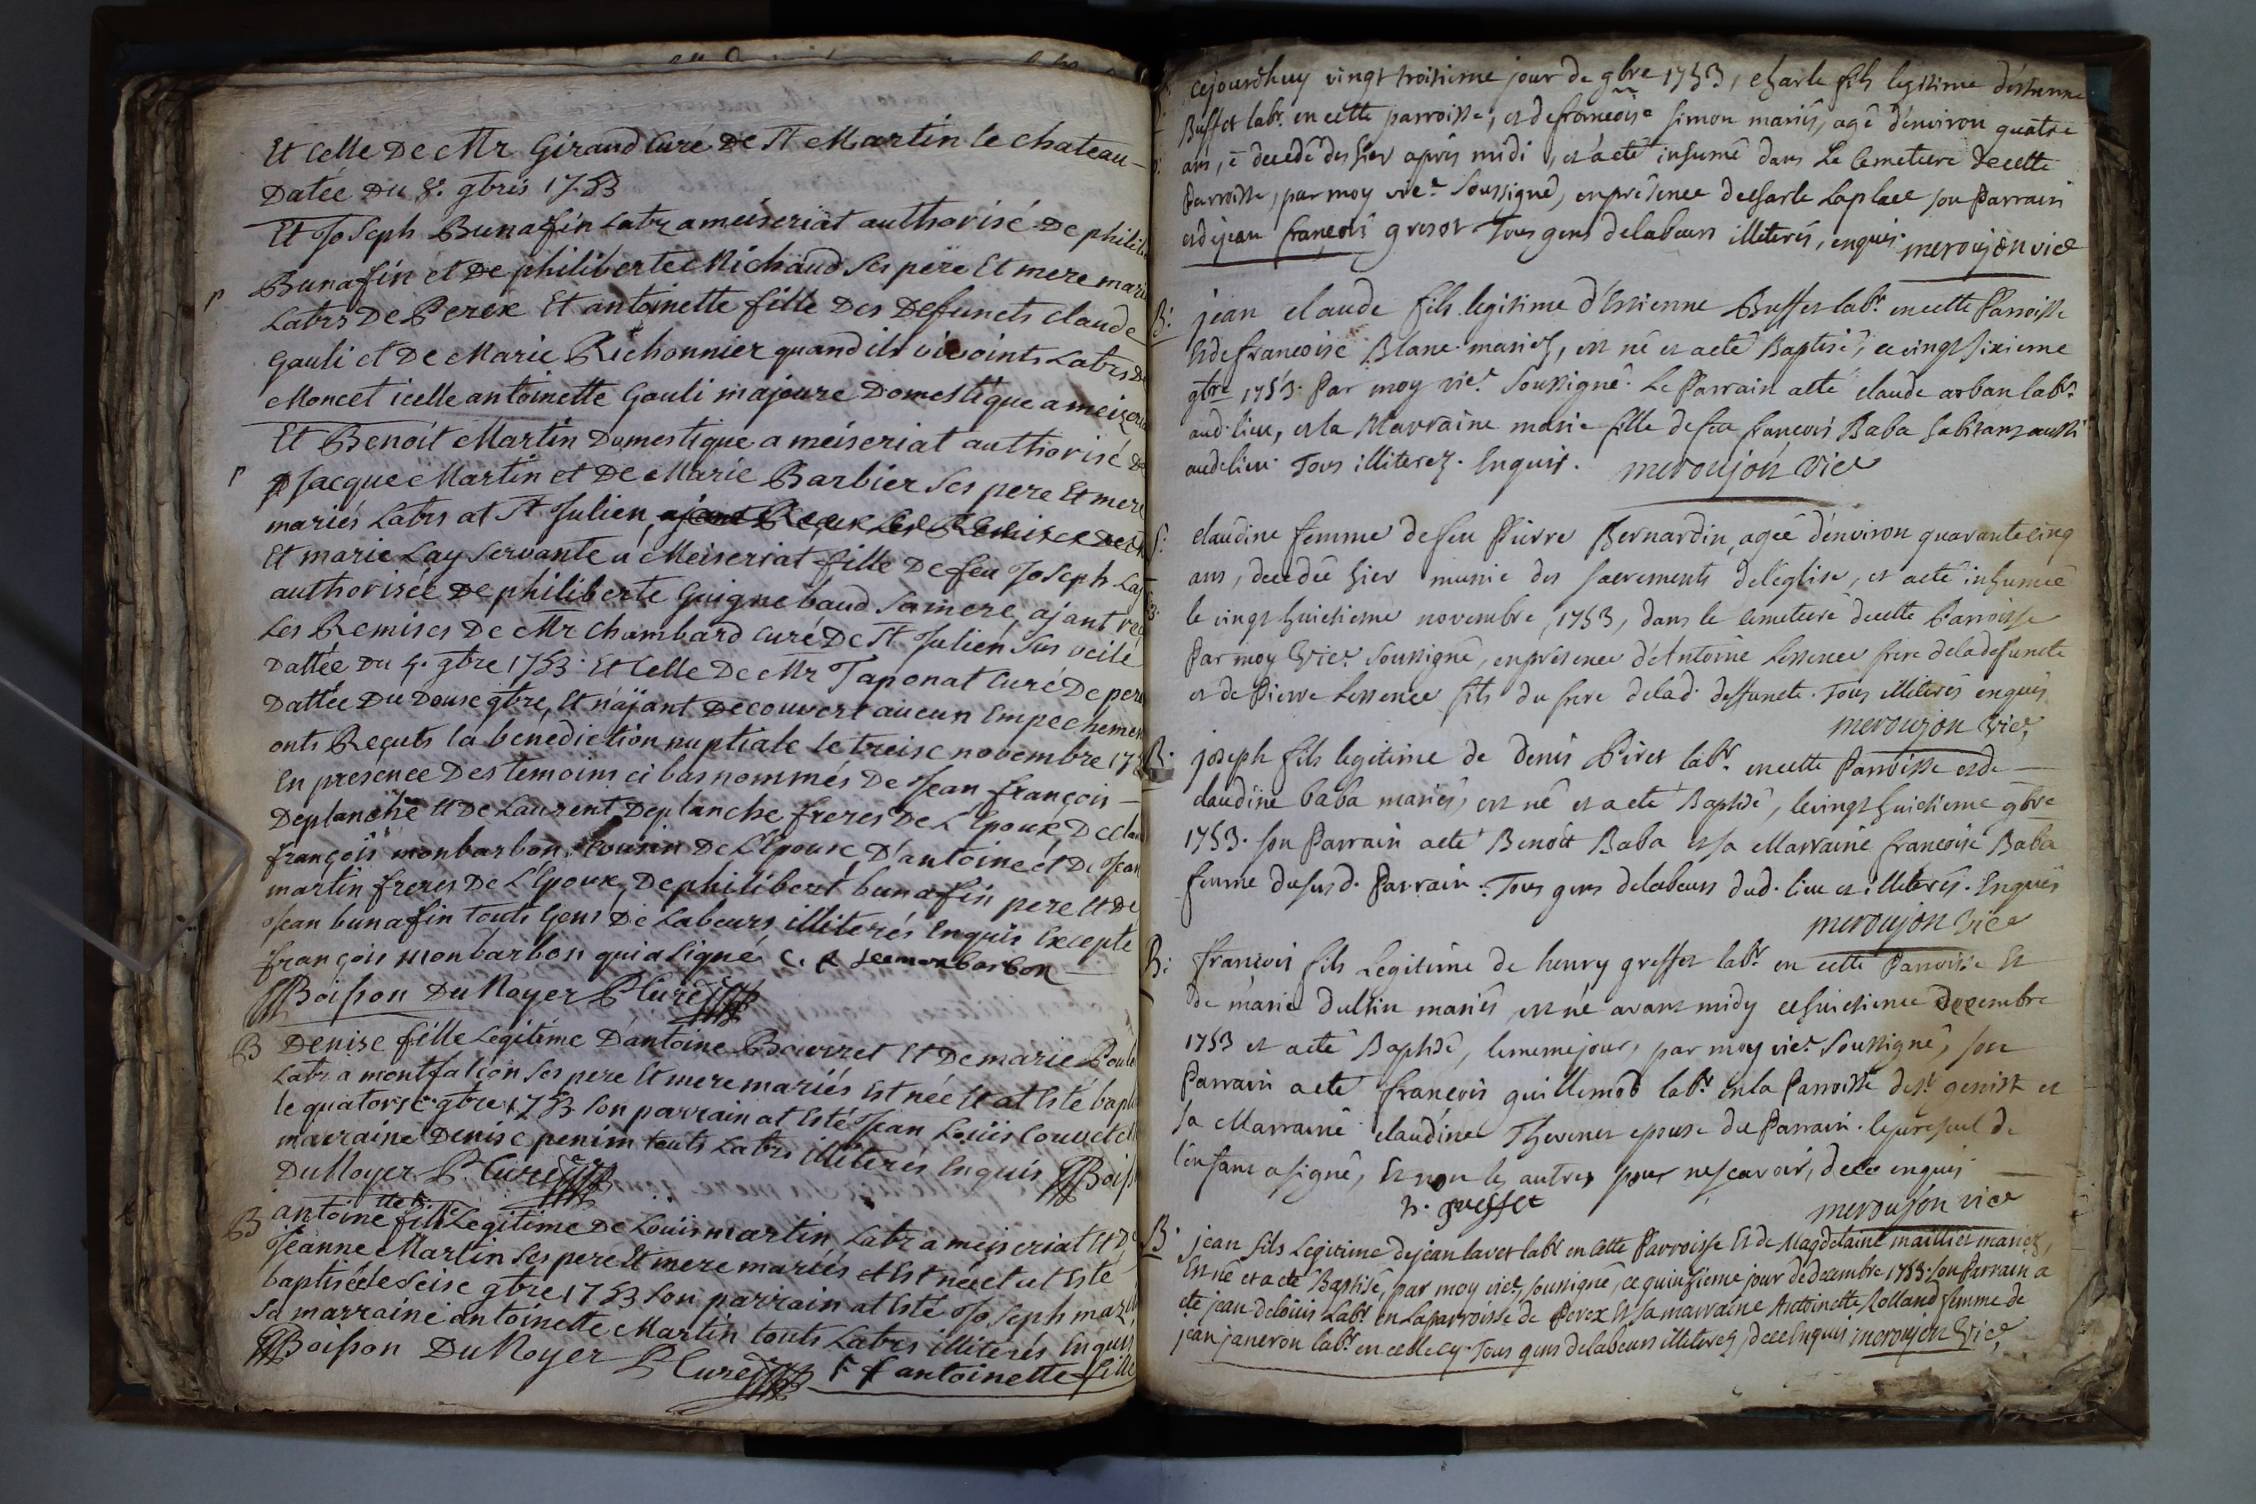 Et Celle De Mr Giraud Curé De St Martin le chateau
Datée Du 8. gbris 1753
Et Joseph Bunafin Labr a meiseriat authorisé De philib
Bunafin et De philiberte Michaud Ses père Et mere mari
Labrs De Perex Et antoinette fille Des Defuncts claude
Gauli et De Marie Richonnier quand ils vivoints Labrs De
Moncet icelle antoinette Gauli majeure Domestique a meixeria
Et Benoit Martin Domestique a meiseriat authorisé De
Jacque Martin et De Marie Barbier Ses pere Et mere
mariés Labrs at St Julien
Et marie Lay Servante a Meiseriat fille De feu Joseph La
authorisée De philiberte Guignebaud Sa mere, ajant reç
Les Remises De Mr Chambard Curé De St Julien Sus veile
Dattée Du 4. gbre 1753. Et Celle De Mr Taponat Curé De pere
Dattée Du Douse gbre, Et n'ajant Decouvert aucun Empechemen
onts Reçuts la benediction nuptiale le treise novembre 17
En presence Des temoins ci bas nommés De Jean françois
Deplanche et De Laurent Deplanche freres De L'Epoux De clau
françois monbarbon, Cousin De L'Epouse, D'antoine et De Jean
martin freres De L'Epoux, De philibert bunafin pere Et De
Jean bunafin touts Gens De Labeurs illiterés Enquis Excepte
françois monbarbon qui a Signé c. f Jeemonbarbon
Boisson Du Noyer P Curé
B Denise fille Legitime D'antoine Bourret Et De marie Poule
Labr a montfalcon Ses pere Et mere mariés Est née Et at Esté bapt
le quatorse gbre 1753 Son parrain at Esté Jean Loüis Couvet
marraine Denise penin touts Labrs illiterés Enquis Boiss
Du Noyer P Curé
B antoine tte fille Legitime De Louis martin Labr a meiseriat Et De
Jeanne Martin Ses pere Et mere mariés Est née et at Esté
baptisée le Seise gbre 1753 Son parrain at Esté Joseph mar
Sa marraine antoinette Martin touts Labrs illiterés Enquis
Boisson Du Noyer P Curé antoinette fille
cejourdhuy vingt troisieme jour de gbre 1753, charle fils legitime d'estienne
Buffet labr. en cette parroisse, et de francoise Simon mariés, agé d'environ quatre
ans, é decedé des hier après midi, et a eté inhumé dans Le Cemetiere de cette
Parroisse, par moy vic.e Soussigné, en présence de charle Laplace son Parrain
et de jean françois gresot Tous gens de labeurs illiterés, enquis. meroujon vice
B: jean claude fils legitime d'Estienne Buffet labr. en cette Parroisse
Et de francoise Blanc mariez, est né et a eté Baptisé, ce vingt sixieme
gbre 1753. Par moy vic.e Soussigné. Le Parrain a eté claude arban labr.
aud. lieu, et la Marraine marie fille de feu francois Baba habitant aussi
aud. lieu. Tous illiterez. Enquis. meroujon vice
S: claudine femme de feu Pierre Bernardin, agée d'environ quarante cinq
ans, decedée hier munie des sacrements de l'eglise, et a eté inhumée
le vingt huictieme novembre, 1753, dans le cemetiere de cette Parroisse
Par moy Vic.e Soussigné, en présence d'Antoine Lessence frere de la defuncte
et de Pierre Lessence fils du frere de lad. deffuncte. Tous illiterés enquis
meroujon Vice
B: joseph fils legitime de denis Piret labr. en cette Parroisse et de
claudine baba mariés, est né et a eté Baptisé, le vingt huictieme gbre
1753. son Parrain a eté Benoit Baba et sa Marraine francoise Baba
femme du susd. Parrain. Tous gens de labeurs dud. lieu et illiterés. Enquis
meroujon Vice
B: francois fils Legitime de henry greffet labr. en cette Parroisse Et
de marie dultin mariés, est né avant midy ce huictieme Decembre
1753 et a eté Baptisé, le meme jour, par moy vic.e Soussigné, son
Parrain a eté francois guillemod labr. en la Parroisse de st. genist et
sa Marraine claudine Thevenet epouse du Parrain. le pere seul de
l'enfant a signé, Et non les autres pour ne scavoir, de ce enquis
h. greffet
meroujon vice
B: jean fils Legitime de jean lavet labr. en cette Parroisse Et de Magdelaine maillier mariez,
Est né et a eté Baptisé, par moy vic.e soussigné, ce quinsieme jour de decembre 1753. son Parrain a
eté jean delouis Labr. en La parroisse de Perex Et sa marraine Antoinette Rolland femme de
jean janeron labr. en celle cy. Tous gens de labeurs illiterez, de ce Enquis meroujon Vice